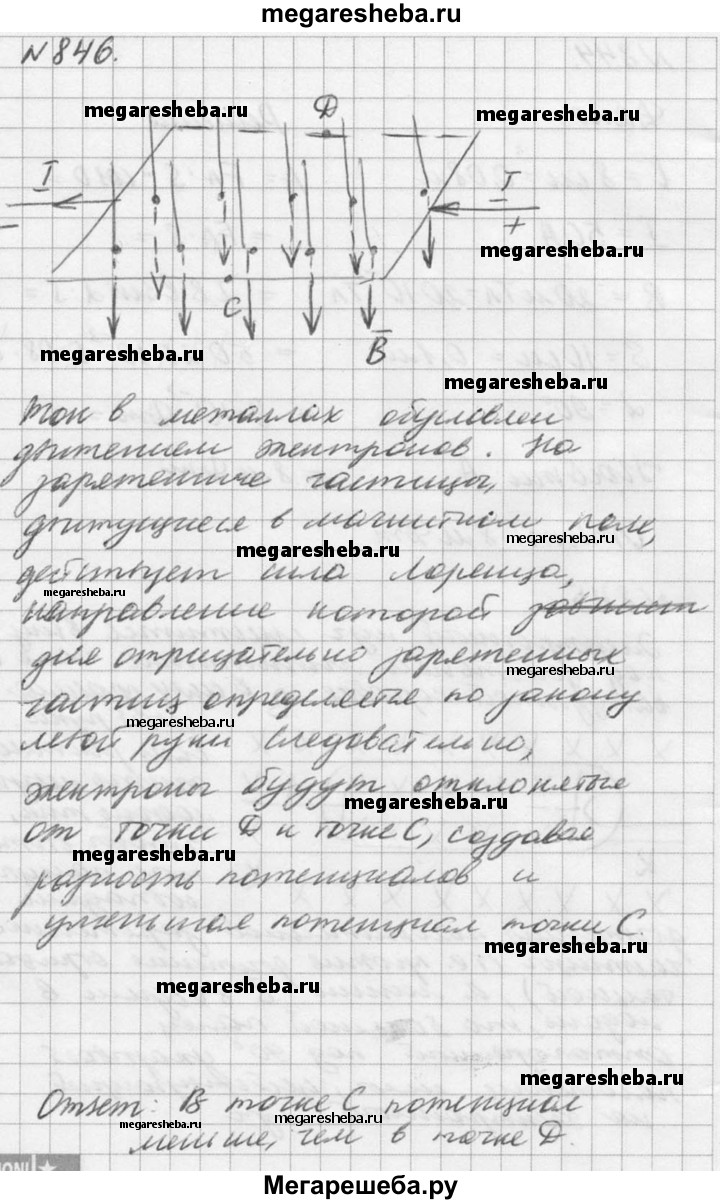 megaresheba.ru
N 846.
D
megaresheba.ru
megaresheba.ru
I
I
−
+
megaresheba.ru
C
B
megaresheba.ru
megaresheba.ru
Ток в металлах обусловлен
движением электронов. На
заряженные частицы,
движущиеся в магнитном поле,
megaresheba.ru
megaresheba.ru
действует сила Лоренца,
megaresheba.ru
направление которой зависит
для отрицательно заряженных
megaresheba.ru
частиц определяется по закону
megaresheba.ru
левой руки следовательно,
электроны будут отклонятые
megaresheba.ru
от точки D к точке C, создавая
megaresheba.ru
разность потенциалов и
уменьшая потенциал точки C.
megaresheba.ru
megaresheba.ru
megaresheba.ru
Ответ: В точке C потенциал
megaresheba.ru
меньше, чем в точке D.
megaresheba.ru
Мегарешеба.ру